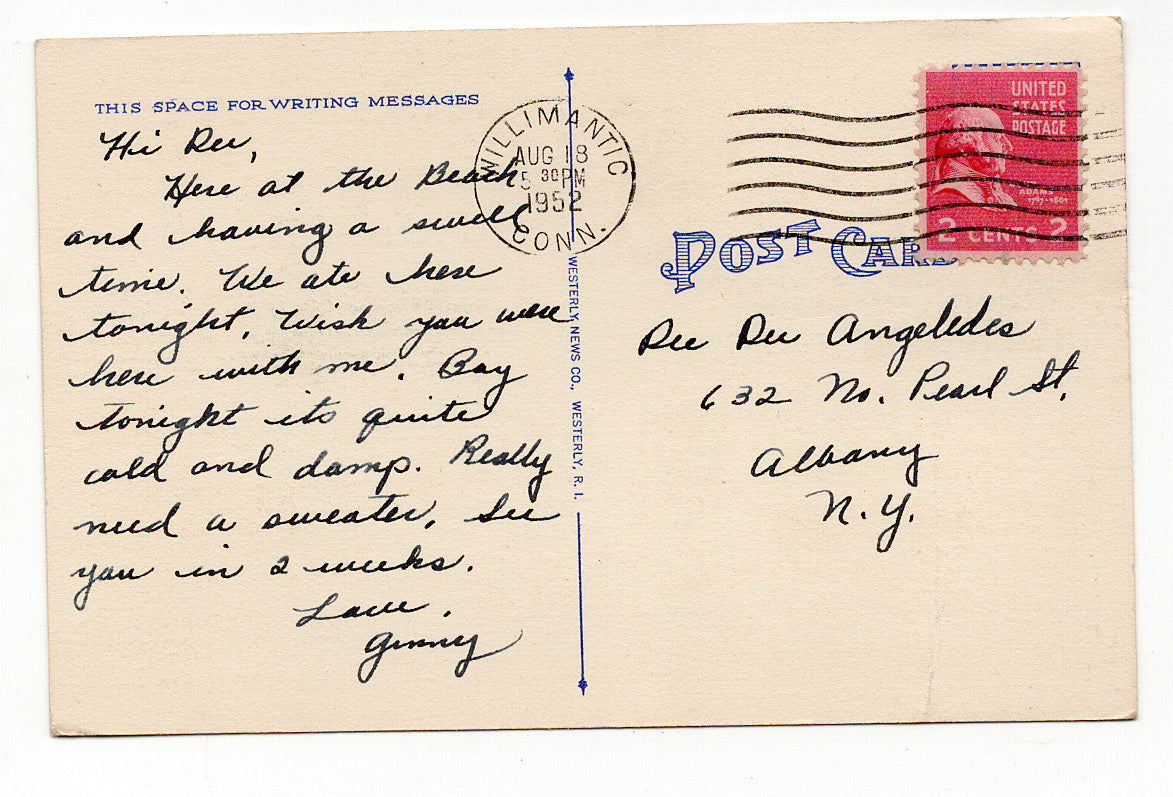 THIS SPACE FOR WRITING MESSAGES
Hi Dee,
Here at the Beach
and having a swell
time. We ate here
tonight. Wish you were
here with me. Boy
tonight its quite
cold and damp. Really
need a sweater. See
you in 2 weeks.
Love,
Ginny
WESTERLY NEWS CO., WESTERLY, R. I.
WILLIMANTIC
AUG 18
5 30 PM
1952
CONN.
UNITED
STATES
POSTAGE
ADAMS
1797-1801
2 CENTS 2
POST CARD
Dee Dee Angeledes
632 No. Pearl St.
Albany
N.Y.